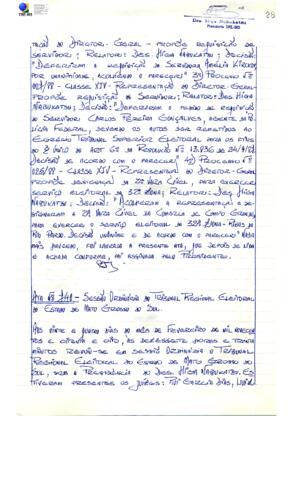 TRE/MS
Des. Higa Nabukatsu
Presidente TRE/MS
28
tação do Director-Geral - propõe requisição de
servidor; Relator: Des. Higa Nabukatsu; Decisão:
"Deferiram a requisição da servidora
por unanimidade, acolheram o parecer". 3º) Processo nº
/88 - Classe XIV - Representação do Director-Geral
propõe requisição de servidor; Relator: Des. Higa
Nabukatsu; Decisão: "Deferiram o pedido de requisição
do servidor Carlos Pereira Gonçalves, agente da Po-
lícia Federal, devendo os autos ser remetidos ao
Egrégio Tribunal Superior Eleitoral, para os fins
do § único do art. da Resolução nº
Decisão de acordo com o parecer". 4º) Processo nº
/88 - Classe XIV - Representação do Director-Geral
propõe designação da 2ª Vara Cível, para exercer
serviço eleitoral da 32ª Zona; Relator: Des. Higa
Nabukatsu; Decisão: "Acolheram a representação e de-
signaram a 2ª Vara Cível da Comarca de Campo Grande,
para exercer o serviço eleitoral da 32ª Zona - Ribas do
Rio Pardo. Decisão unânime e de acordo com o parecer." Nada
mais havendo, foi lavrada a presente ata, que depois de lida
e achada conforme, foi assinada pelo Presidente.
Ata nº - Sessão Ordinária do Tribunal Regional Eleitoral
do Estado de Mato Grosso do Sul.
Aos vinte e dias do mês de Fevereiro de mil novecen-
tos e oitenta e oito, às dezessete horas e trinta
minutos reuniu-se em sessão ordinária o Tribunal
Regional Eleitoral do Estado de Mato Grosso do
Sul, sob a Presidência do Des. Higa Nabukatsu. Es-
tiveram presentes os Juízes: